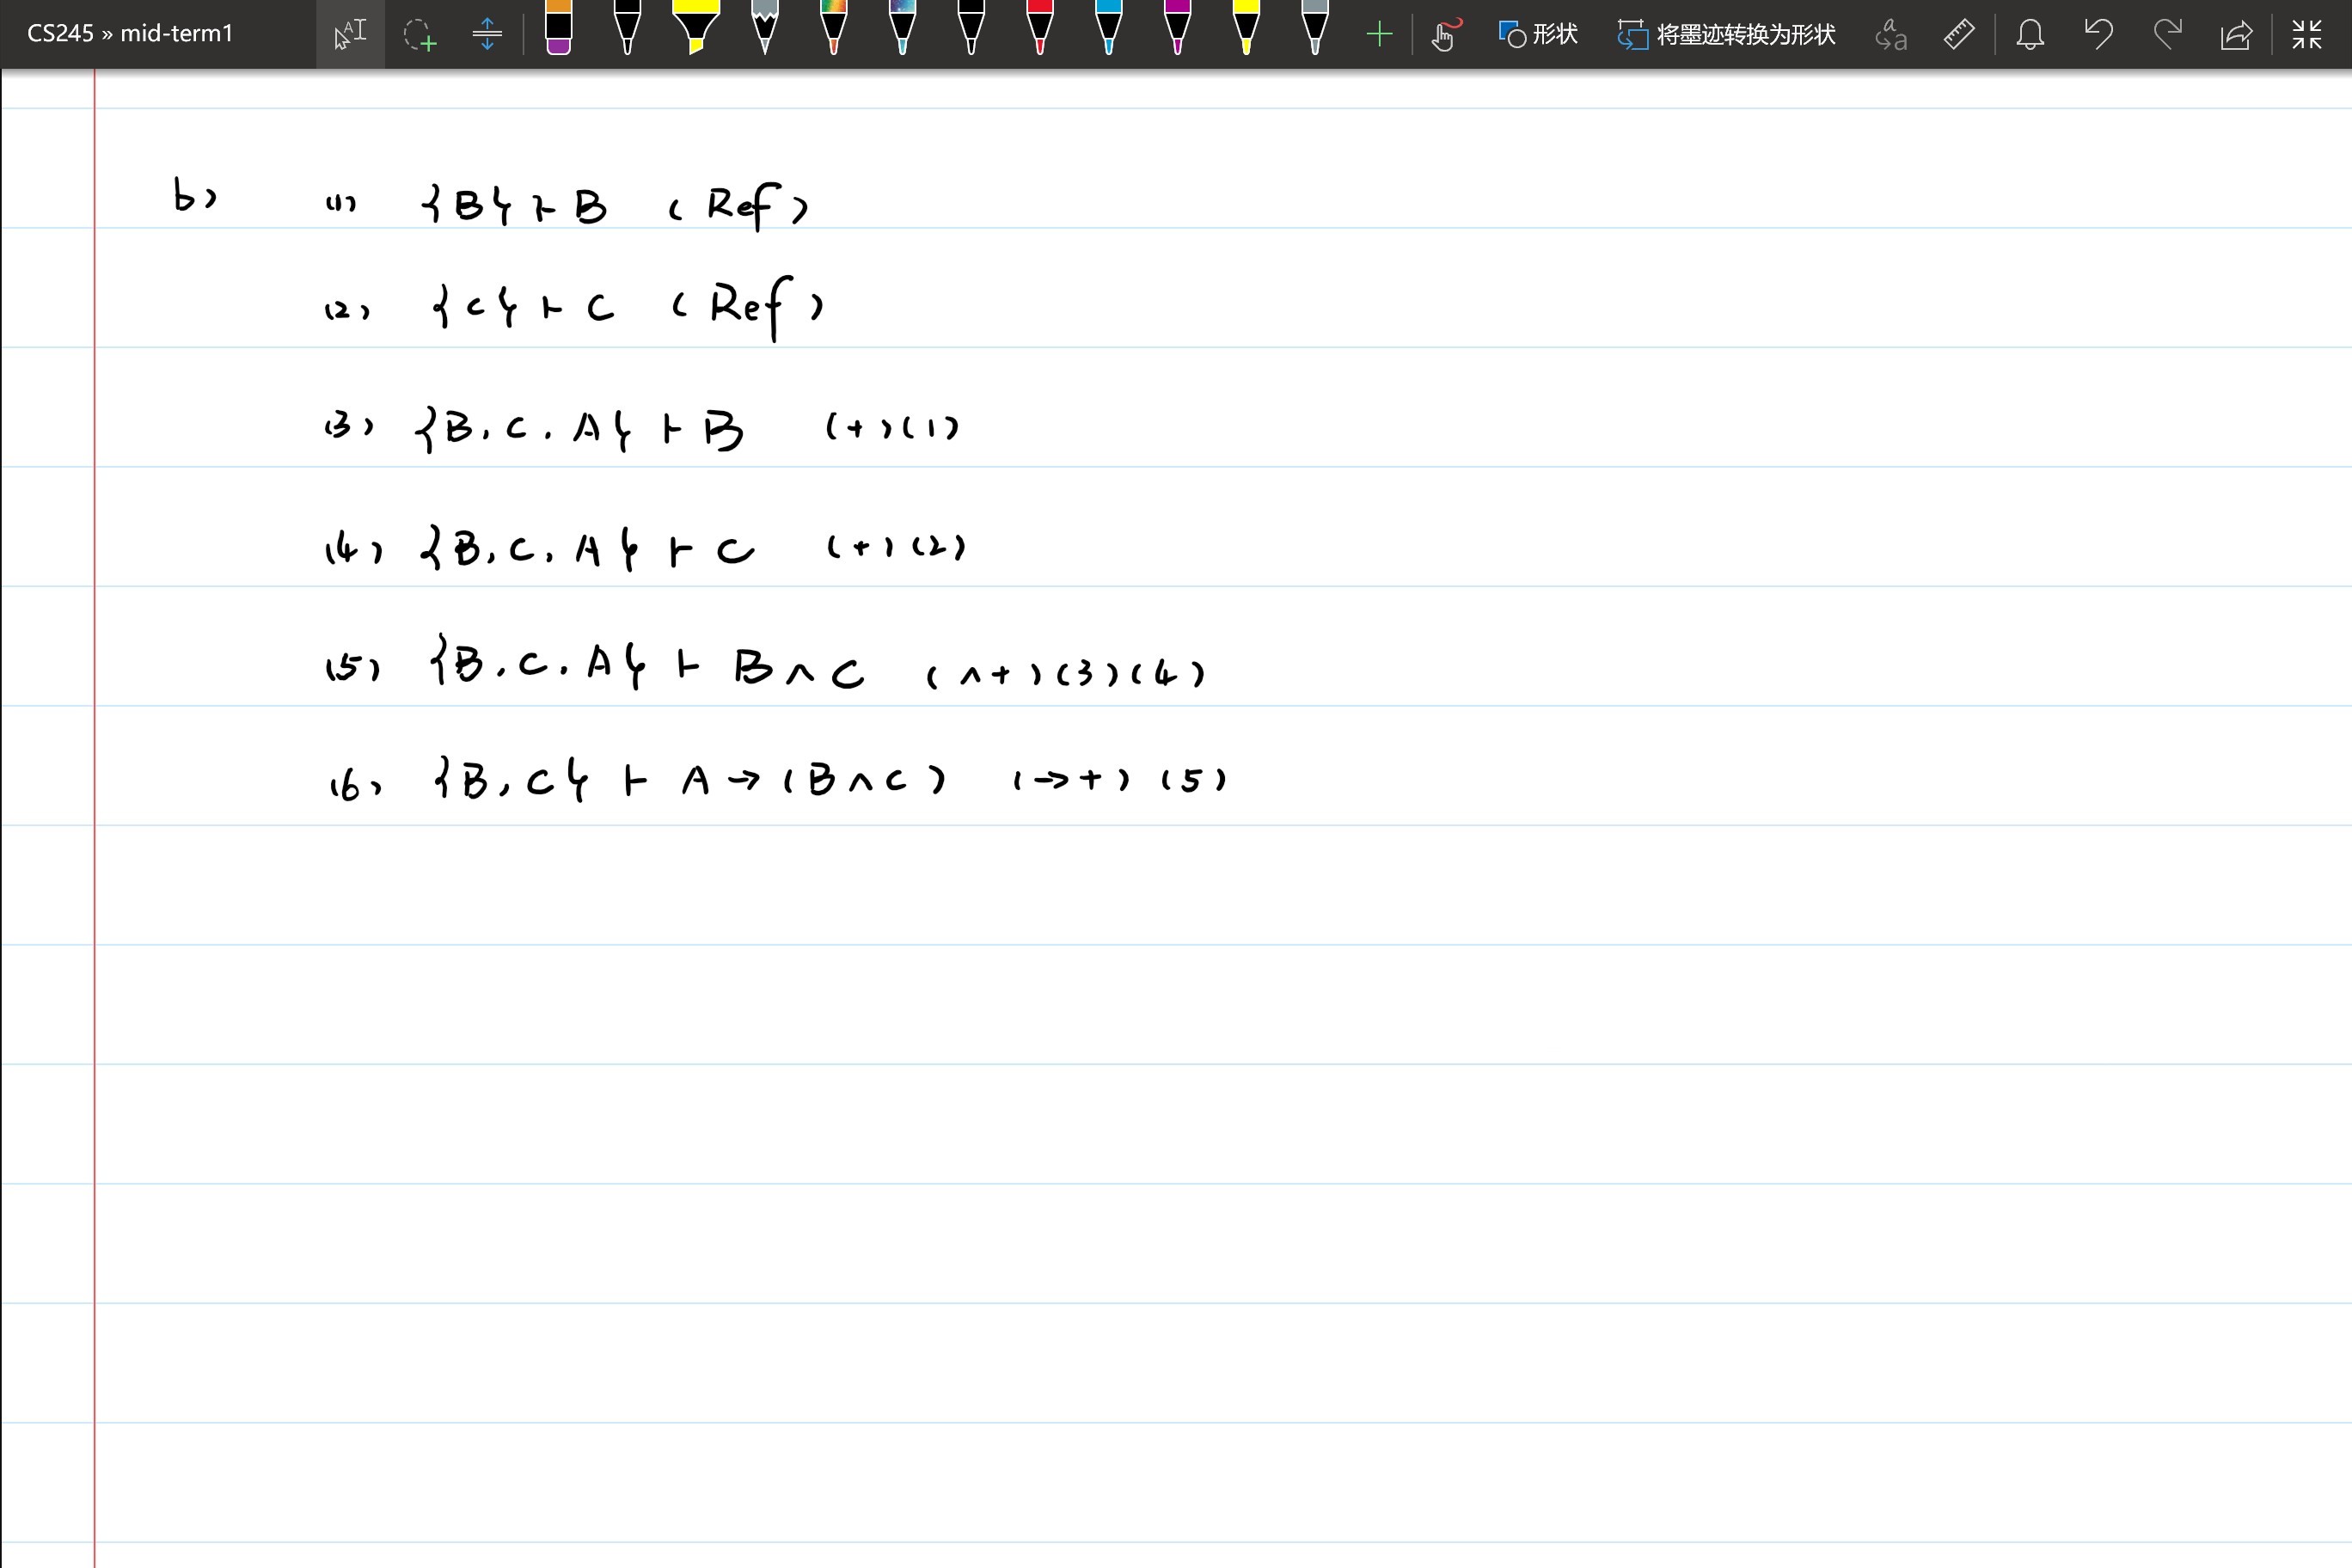 CS245 » mid-term1 形状 将墨迹转换为形状
b) (1) {B} ⊢ B (Ref)
(2) {C} ⊢ C (Ref)
(3) {B, C, A} ⊢ B (+)(1)
(4) {B, C, A} ⊢ C (+)(2)
(5) {B, C, A} ⊢ B∧C (∧+)(3)(4)
(6) {B, C} ⊢ A→(B∧C) (→+)(5)